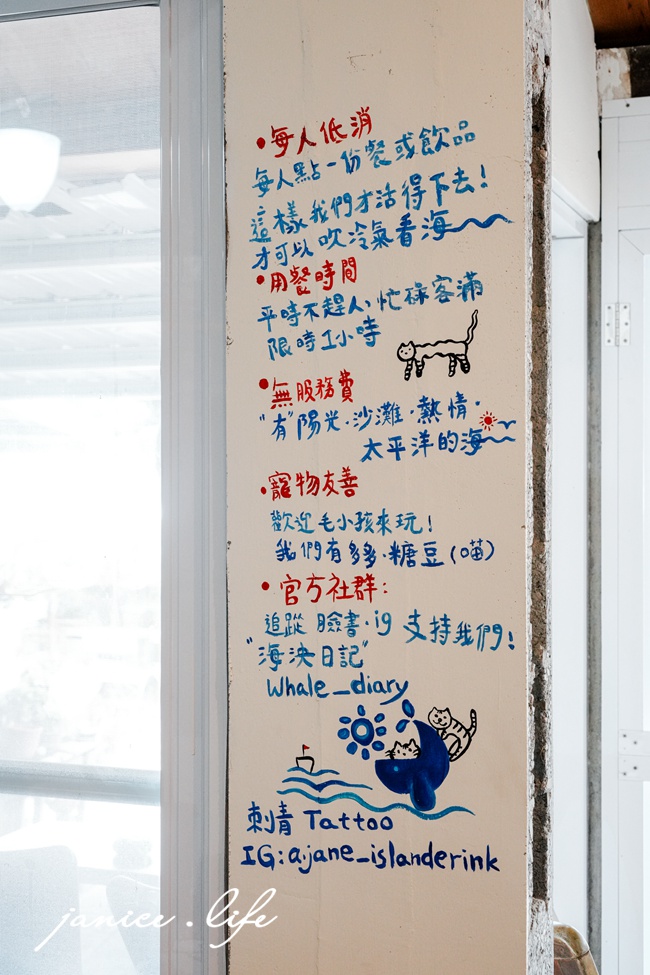 •每人低消
每人點一份餐或飲品
這樣我們才活得下去!
才可以吹冷氣看海
•用餐時間
平時不趕人、忙碌客滿
限時1小時
•無服務費
"有"陽光·沙灘·熱情·
太平洋的海
•寵物友善
歡迎毛小孩來玩!
我們有多多·糖豆(喵)
•官方社群:
追蹤 臉書·ig 支持我們!
"海泱日記"
Whale_diary
刺青 Tattoo
IG:a.jane_islanderink
janice.life